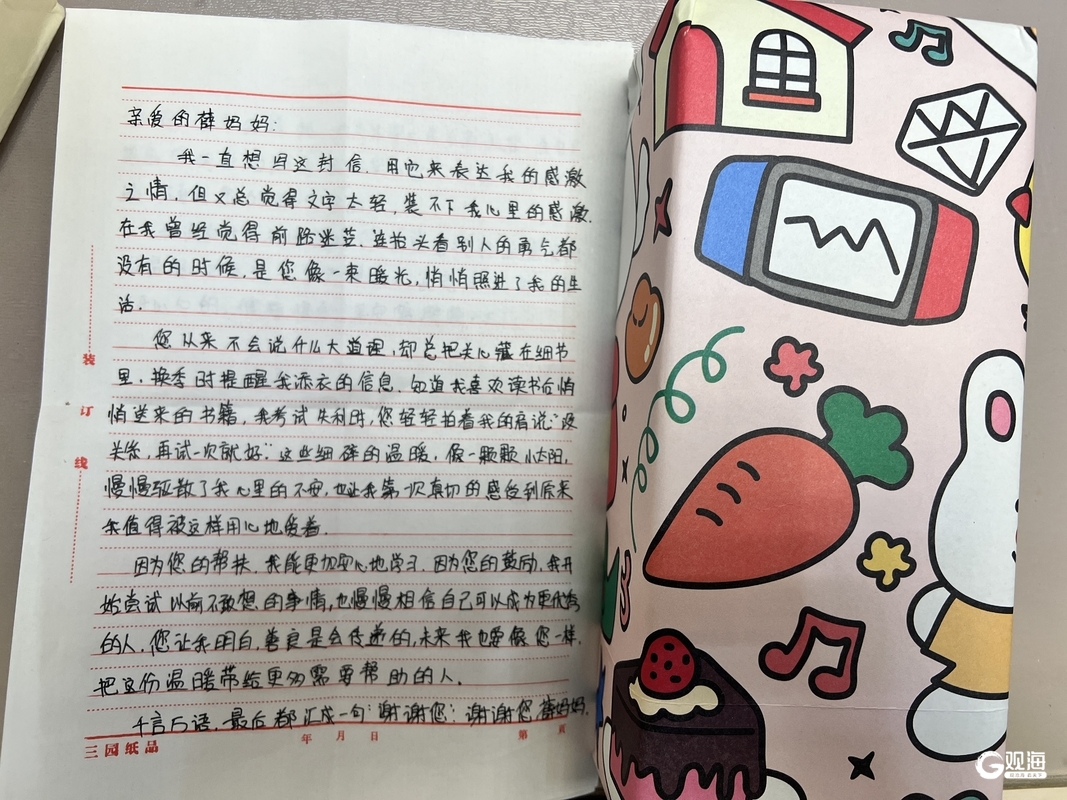 亲爱的薛妈妈：
我一直想写这封信，用它来表达我的感激
之情，但又总觉得文字太轻，装不下我心里的感激。
在我曾经觉得前路迷茫，连抬头看别人的勇气都
没有的时候，是您像一束暖光，悄悄照进了我的生
活。
您从来不会说什么大道理，却总把关心藏在细节
里，换季时提醒我添衣的信息，知道我喜欢读书后悄
悄送来的书籍，我考试失利时，您轻轻拍着我的肩说“没
关系，再试一次就好”这些细碎的温暖，像一颗颗小太阳，
慢慢驱散了我心里的不安，也让我第一次真切的感受到原来
我值得被这样用心地爱着。
因为您的帮扶，我能更加安心地学习，因为您的鼓励，我开
始尝试以前不敢想的事情，也慢慢相信自己可以成为更优秀
的人，您让我明白，善良是会传递的，未来我也要像您一样，
把这份温暖带给更多需要帮助的人。
千言万语，最后都汇成一句：谢谢您！谢谢您薛妈妈。
装
订
线
三园纸品 年 月 日 第 页
观海